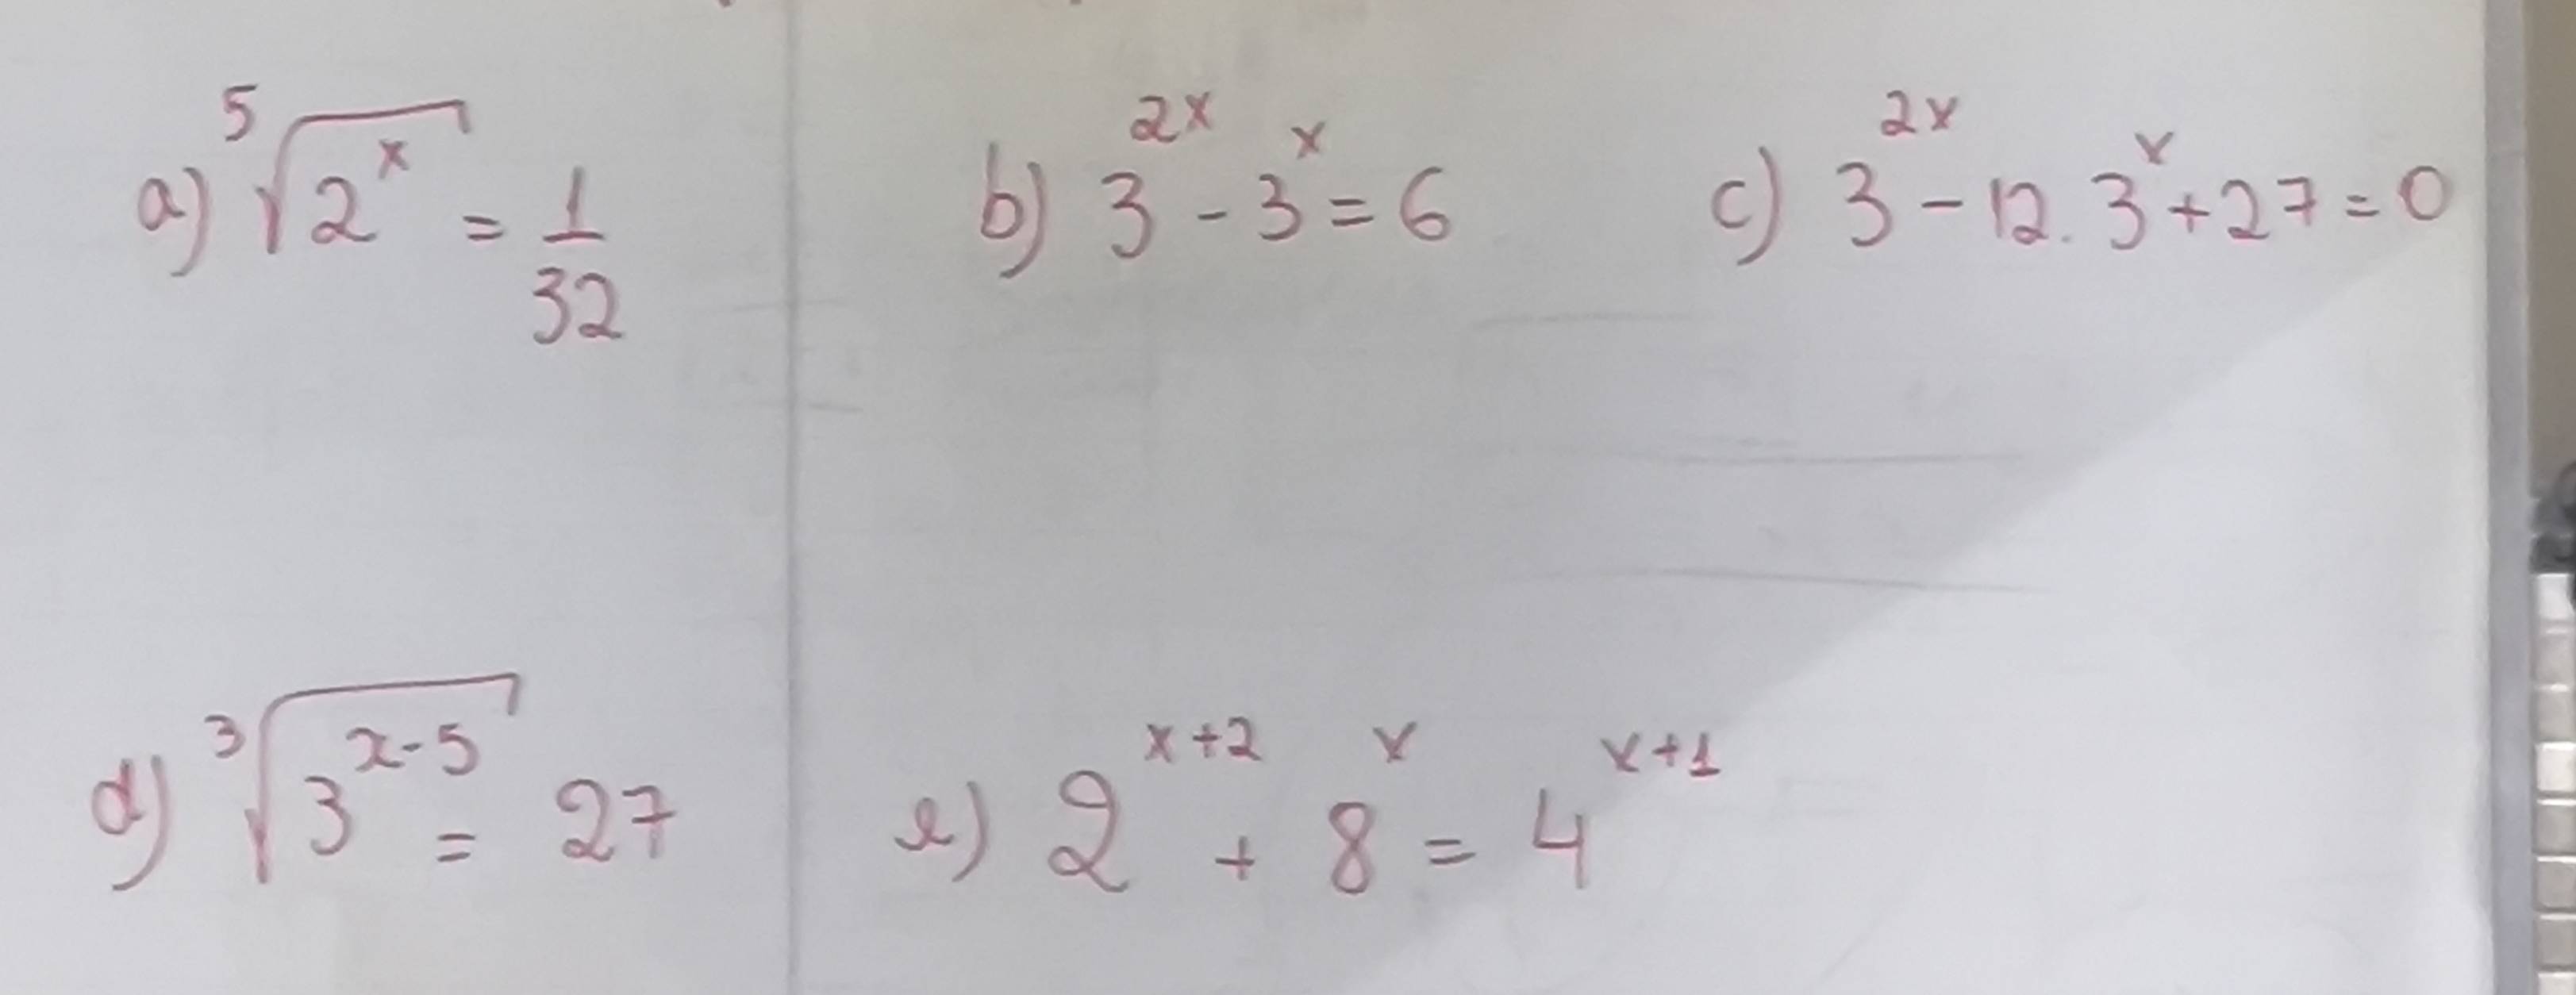 a) ⁵√2ˣ = 1/32
b) 3²ˣ - 3ˣ = 6
c) 3²ˣ - 12. 3ˣ + 27 = 0
d) ³√3ˣ⁻⁵ = 27
e) 2ˣ⁺² + 8ˣ = 4ˣ⁺¹